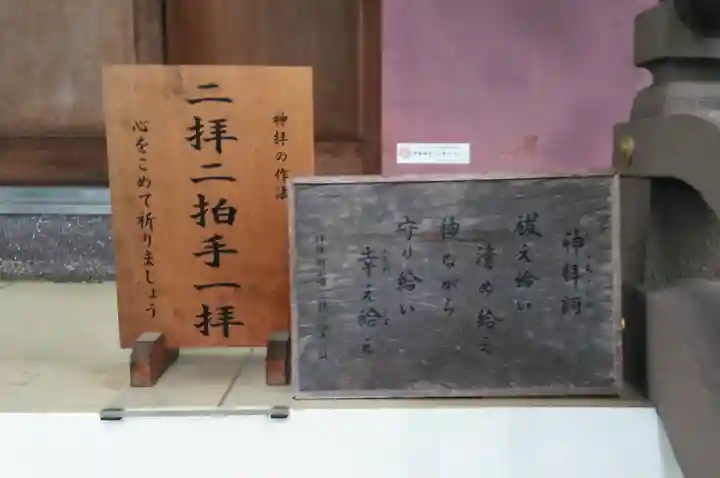 神拝の作法
二拝二拍手一拝
心をこめて祈りましょう
神拝詞
祓え給い
清め給え
守り給い
幸え給え